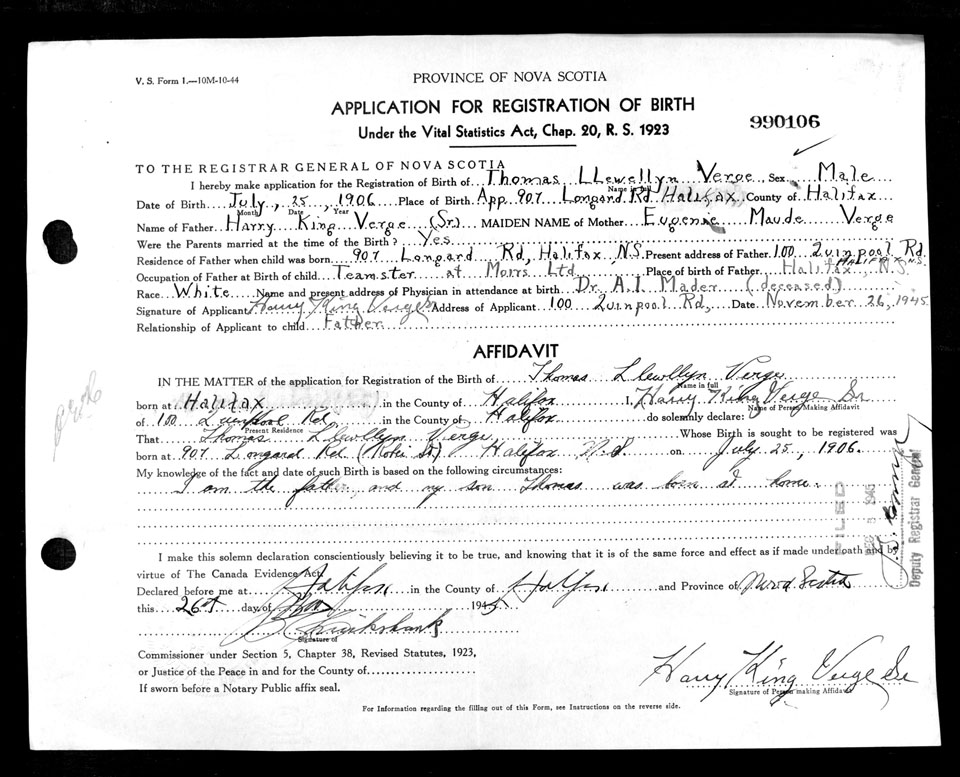 V. S. Form 1.—10M-10-44
PROVINCE OF NOVA SCOTIA
APPLICATION FOR REGISTRATION OF BIRTH
Under the Vital Statistics Act, Chap. 20, R. S. 1923
990106
TO THE REGISTRAR GENERAL OF NOVA SCOTIA
I hereby make application for the Registration of Birth of Thomas LLewellyn Verge Sex Male
Name in full
Date of Birth July, 25, 1906 Place of Birth App. 907 Longard Rd Halifax County of Halifax
Month Date Year
Name of Father Harry King Verge (Sr) MAIDEN NAME of Mother Eugenie Maude Verge
Were the Parents married at the time of the Birth? Yes
Residence of Father when child was born 907 Longard Rd, Halifax, N.S. Present address of Father 100 Quinpool Rd
HALIFAX N.S.
Occupation of Father at Birth of child Teamster at Moirs Ltd. Place of birth of Father Halifax, N.S.
Race White Name and present address of Physician in attendance at birth Dr. A.I. Mader (deceased)
Signature of Applicant Harry King Verge Sr Address of Applicant 100 Quinpool Rd, Date November 26, 1945.
Relationship of Applicant to child Father
AFFIDAVIT
IN THE MATTER of the application for Registration of the Birth of Thomas Llewllyn Verge
Name in full
born at Halifax in the County of Halifax I, Harry King Verge Sr
Name of Person Making Affidavit
of 100 Quinpool Rd. in the County of Halifax do solemnly declare:
Present Residence
That Thomas Llewllyn Verge Whose Birth is sought to be registered was
born at 907 Longard Rd (Robie St) Halifax N.S on July 25, 1906.
My knowledge of the fact and date of such Birth is based on the following circumstances:
I am the father, and my son Thomas was born at home.
FILED
1945
Deputy Registrar General
I make this solemn declaration conscientiously believing it to be true, and knowing that it is of the same force and effect as if made under oath and by
virtue of The Canada Evidence Act.
Declared before me at Halifax in the County of Halifax and Province of Nova Scotia
this 26th day of Nov 1945
Cruikshank
Signature of
Commissioner under Section 5, Chapter 38, Revised Statutes, 1923,
or Justice of the Peace in and for the County of
If sworn before a Notary Public affix seal.
Harry King Verge Sr
Signature of Person making Affidavit
For Information regarding the filling out of this Form, see Instructions on the reverse side.